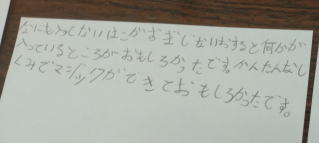 なにも入ってないはこがまきもどしすると何かが
入っているところがおもしろかったです。かんたんなし
くみでマジックができておもしろかったです。